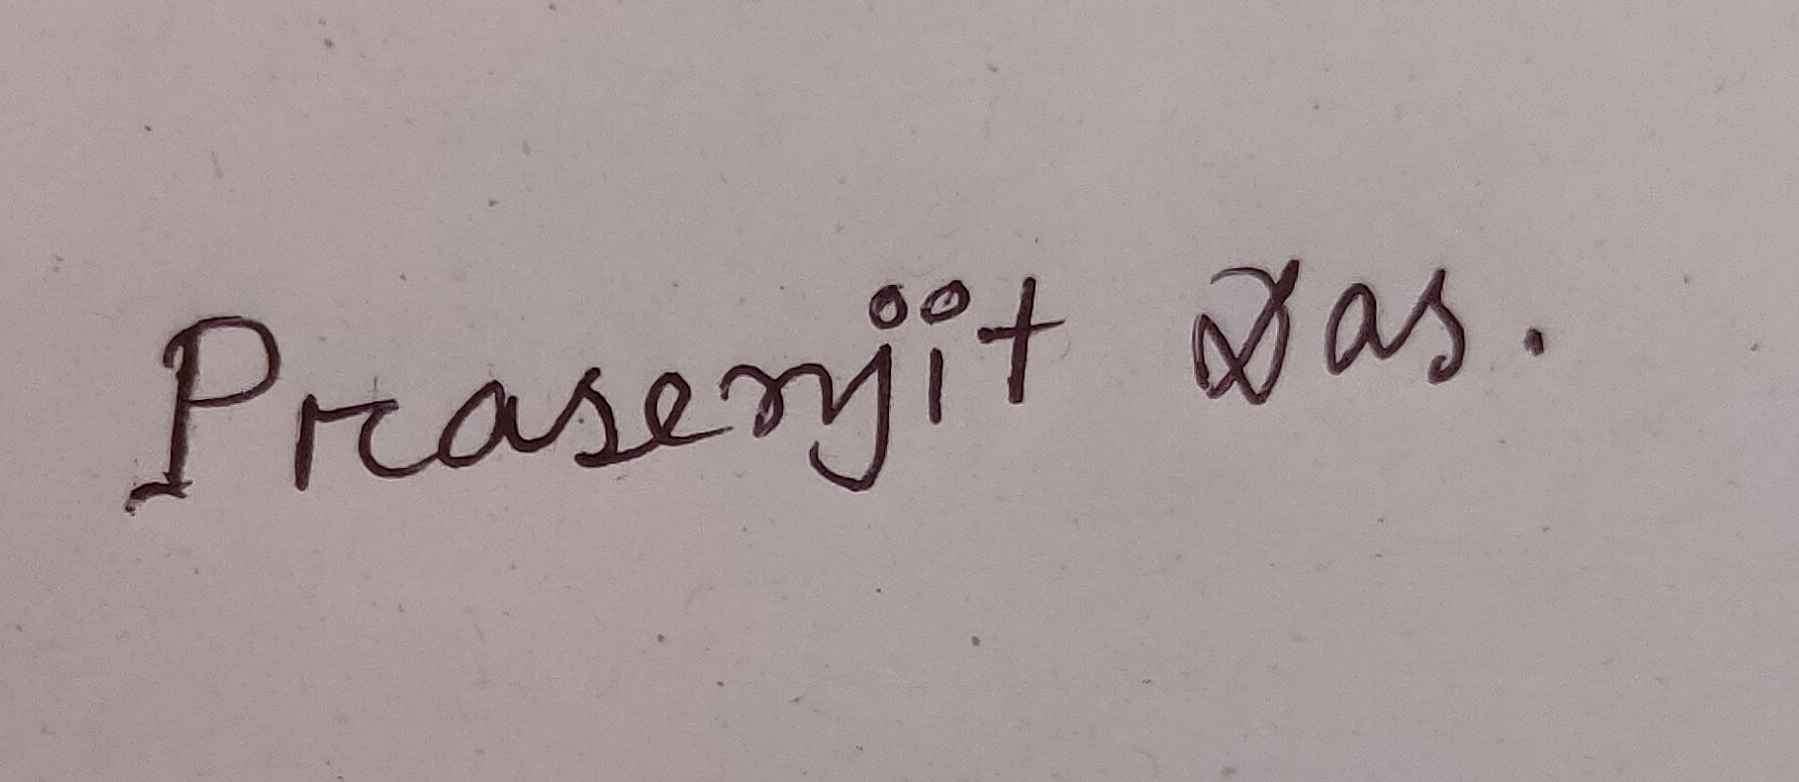 Prasenjit Das.